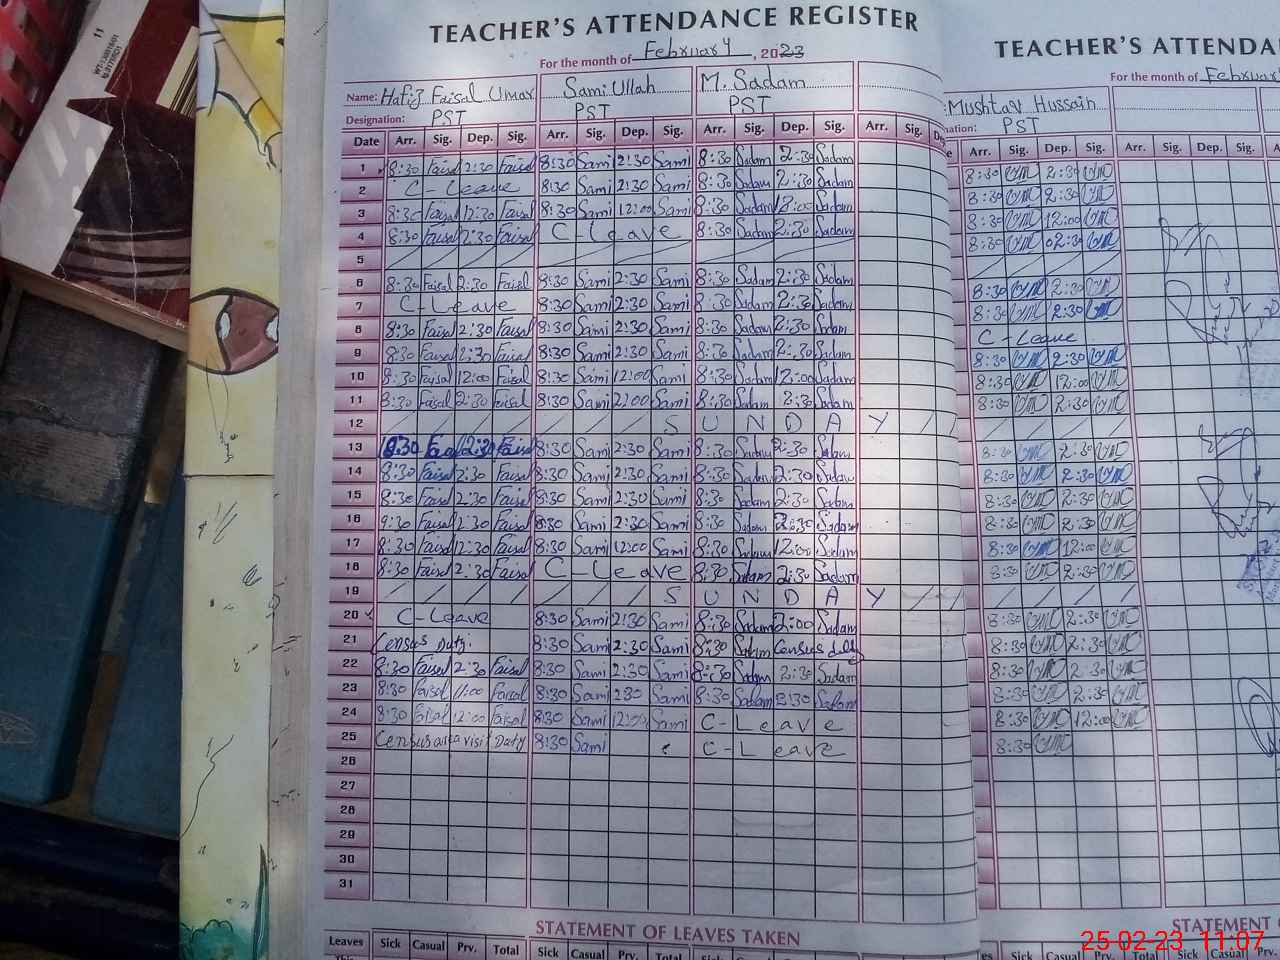 TEACHER'S ATTENDANCE REGISTER
For the month of February, 2023
Name: Hafiz Faisal Umar Sami Ullah M. Sadam
Designation: PST PST PST
Date Arr. Sig. Dep. Sig. Arr. Sig. Dep. Sig. Arr. Sig. Dep. Sig. Arr. Sig. Dep
1 8:30 Faisal 2:30 Faisal 8:30 Sami 2:30 Sami 8:30 Sadam 2:30 Sadam
2 C-Leave 8:30 Sami 2:30 Sami 8:30 Sadam 2:30 Sadam
3 8:30 Faisal 12:30 Faisal 8:30 Sami 12:00 Sami 8:30 Sadam 12:00 Sadam
4 8:30 Faisal 2:30 Faisal C-Leave 8:30 Sadam 2:30 Sadam
5
6 8:30 Faisal 2:30 Faisal 8:30 Sami 2:30 Sami 8:30 Sadam 2:30 Sadam
7 C-Leave 8:30 Sami 2:30 Sami 8:30 Sadam 2:30 Sadam
8 8:30 Faisal 2:30 Faisal 8:30 Sami 2:30 Sami 8:30 Sadam 2:30 Sadam
9 8:30 Faisal 2:30 Faisal 8:30 Sami 2:30 Sami 8:30 Sadam 2:30 Sadam
10 8:30 Faisal 12:00 Faisal 8:30 Sami 12:00 Sami 8:30 Sadam 12:00 Sadam
11 8:30 Faisal 2:30 Faisal 8:30 Sami 2:00 Sami 8:30 Sadam 2:30 Sadam
12 S U N D A Y
13 8:30 Faisal 2:30 Faisal 8:30 Sami 2:30 Sami 8:30 Sadam 2:30 Sadam
14 8:30 Faisal 2:30 Faisal 8:30 Sami 2:30 Sami 8:30 Sadam 2:30 Sadam
15 8:30 Faisal 2:30 Faisal 8:30 Sami 2:30 Sami 8:30 Sadam 2:30 Sadam
16 8:30 Faisal 2:30 Faisal 8:30 Sami 2:30 Sami 8:30 Sadam 2:30 Sadam
17 8:30 Faisal 12:30 Faisal 8:30 Sami 12:00 Sami 8:30 Sadam 12:00 Sadam
18 8:30 Faisal 2:30 Faisal C-Leave 8:30 Sadam 2:30 Sadam
19 S U N D A Y
20 C-Leave 8:30 Sami 2:30 Sami 8:30 Sadam 2:00 Sadam
21 Census Duty. 8:30 Sami 2:30 Sami 8:30 Sadam Census duty
22 8:30 Faisal 2:30 Faisal 8:30 Sami 2:30 Sami 8:30 Sadam 2:30 Sadam
23 8:30 Faisal 11:00 Faisal 8:30 Sami 2:30 Sami 8:30 Sadam 2:30 Sadam
24 8:30 Faisal 12:00 Faisal 8:30 Sami 12:00 Sami C-Leave
25 Census area visit Duty 8:30 Sami C-Leave
26
27
28
29
30
31
STATEMENT OF LEAVES TAKEN
Leaves Sick Casual Prv. Total Sick Casual Prv. Total Sick Casual Prv. Total
TEACHER'S ATTENDA
For the month of February
Mushtav Hussain
nation: PST
Arr. Sig. Dep. Sig. Arr. Sig. Dep. Sig. A
8:30 2:30
8:30 2:30
8:30 12:00
8:30 02:30
8:30 2:30
8:30 2:30
C-Leave
8:30 2:30
8:30 12:00
8:30 2:30
8:30 2:30
8:30 2:30
8:30 2:30
8:30 2:30
8:30 12:00
8:30 2:30
8:30 2:30
8:30 2:30
8:30 2:30
8:30 2:30
8:30 12:00
8:30
STATEMENT O
es Sick Casual Prv. Total Sick Casual
25-02-23 11:07